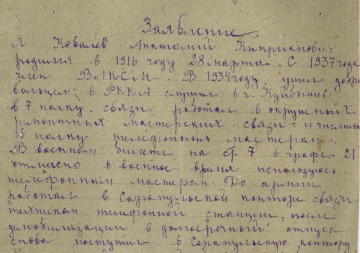 Заявление.
Я Ковалев Анатолий Киприанович
родился в 1916 году 28 марта. С 1937 года
член ВЛКСМ. В 1937 году ушел добро
вольцем в РККА служил в г. Куйбышев
в 7 полку связи работал в окружных
ремонтных мастерских связи и числился
полку телефонным мастером.
В военном билете на стр. 7 в графе 21
отмечено в военное время используется
телефонным мастером. До армии
работал в Сарапульской конторе связи
техником телефонной станции, после
демобилизации в долгосрочный отпуск
снова поступил в Сарапульскую контору